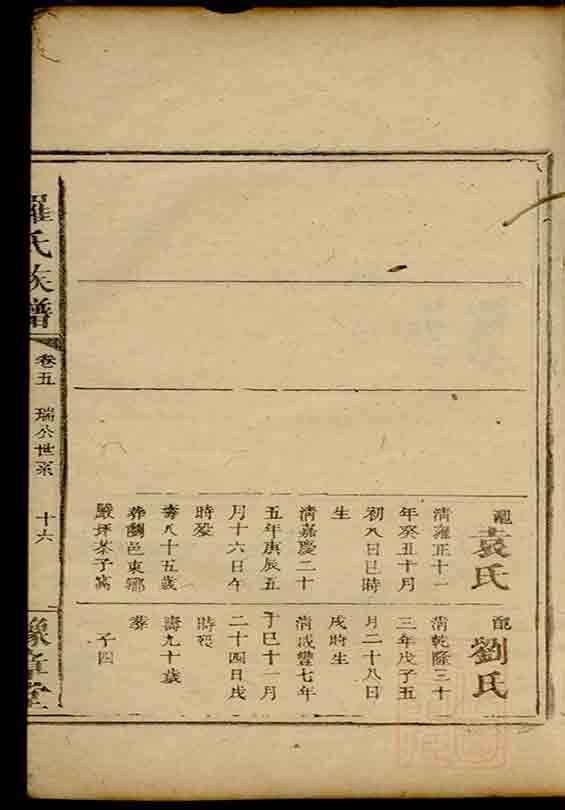 配袁氏
清雍正十一
年癸丑十月
初八日巳時
生
清嘉慶二十
五年庚辰五
月十六日午
時歿
壽八十五歲
葬邑東鄉
嚴坪茶子窩
配劉氏
清乾隆三十
三年戊子五
月二十八日
戌時生
清咸豐七年
丁巳十一月
二十四日戌
時歿
壽九十歲
葬
子四
羅氏族譜
卷五
瑞公世系
十六
豫章堂